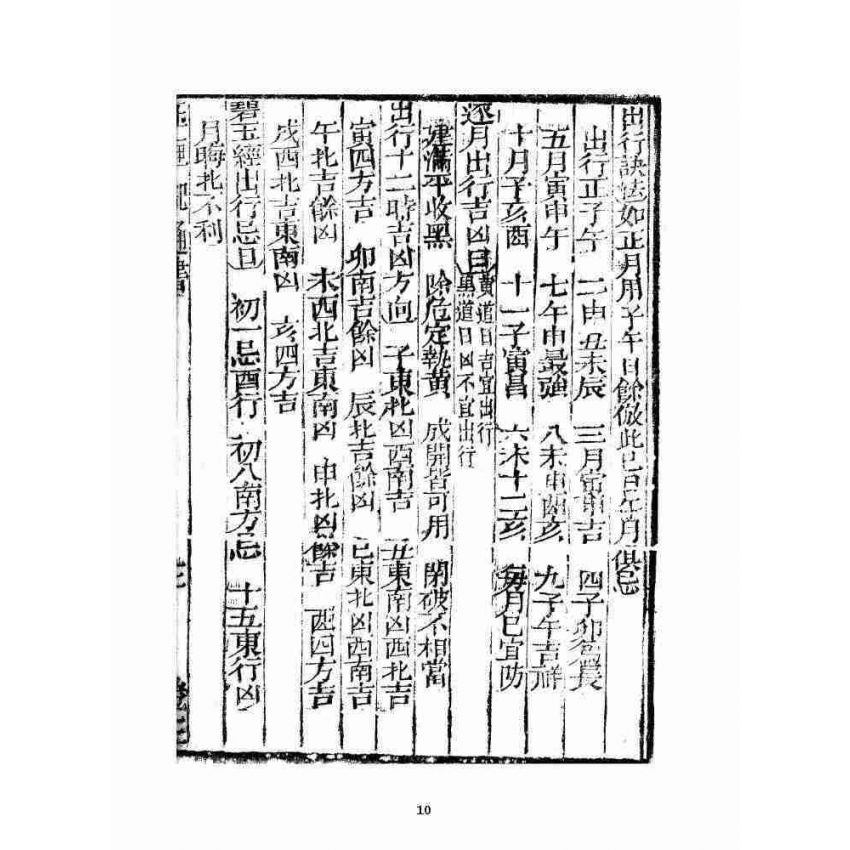 出行訣法如正月用子午日餘倣此巳日年月俱忌
出行正子午 二申丑未辰 三月寅申吉 四子卯為良
五月寅申午 七午申最強 八未申酉亥 九子午吉祥
十月子亥酉 十一子寅昌 六未十二亥 每月巳宜防
逐月出行吉凶日 黃道日吉宜出行
黑道日凶不宜出行
建滿平收黑 除危定執黃 成開皆可用 閉破不相當
出行十二時吉凶方向 子東北凶西南吉 丑東南凶西北吉
寅四方吉 卯南吉餘凶 辰北吉餘凶 巳東北凶西南吉
午北吉餘凶 未西北吉東南凶 申北凶餘吉 酉四方吉
戌西北吉東南凶 亥四方吉
碧玉經出行忌日 初一忌酉行 初八南方忌 十五東行凶
月晦北不利